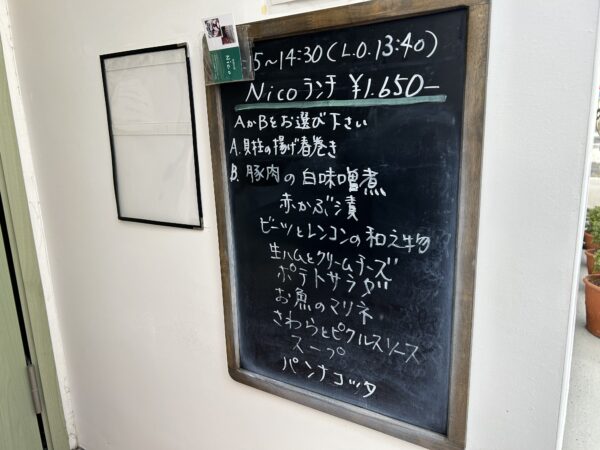 5~14:30(L.O.13:40)
Nicoランチ ¥1.650-
AかBをお選び下さい
A.貝柱の揚げ春巻き
B.豚肉の白味噌煮
赤かぶ漬
ビーツとレンコンの和え物
生ハムとクリームチーズ
ポテトサラダ
お魚のマリネ
さわらとピクルスソース
スープ
パンナコッタ